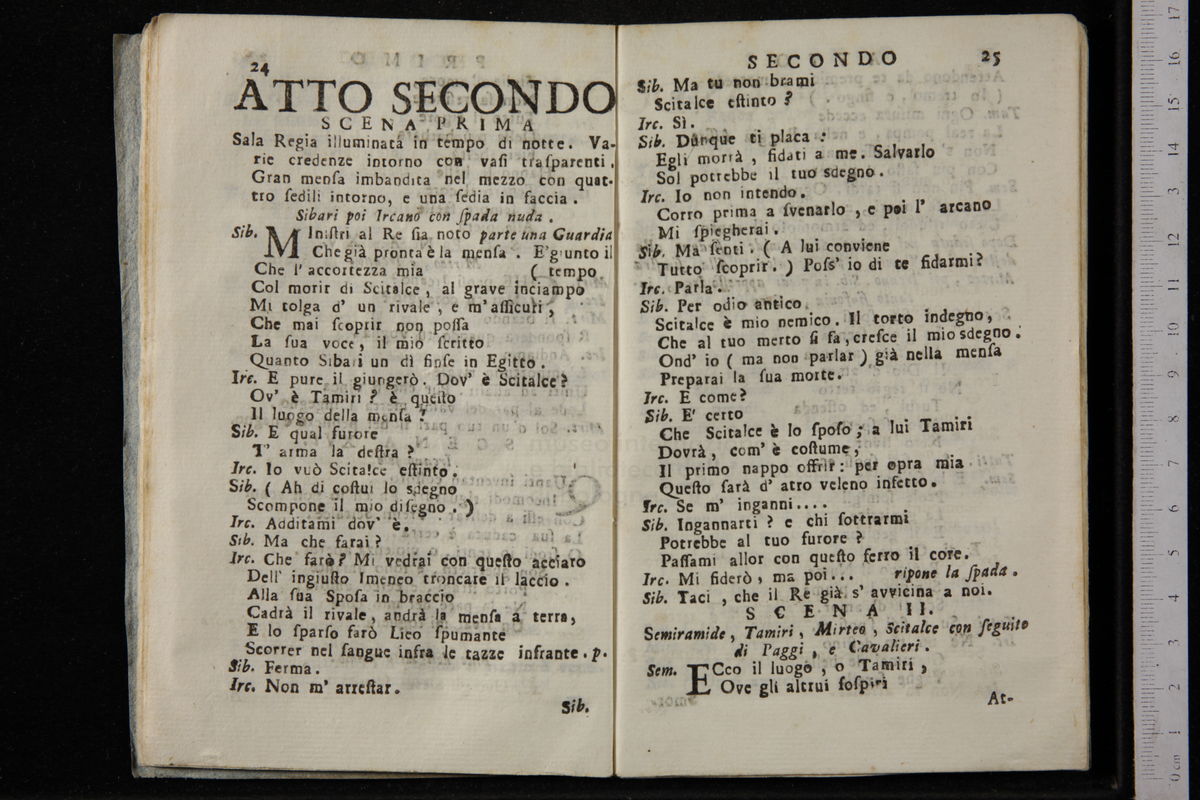 24
ATTO SECONDO
SCENA PRIMA
Sala Regia illuminata in tempo di notte. Va-
rie credenze intorno con vaſi traſparenti.
Gran menſa imbandita nel mezzo con quat-
tro ſedili intorno, e una ſedia in faccia.
Sibari poi Ircano con ſpada nuda.
Sib. MIniſtri al Re ſia noto parte una Guardia
Che già pronta è la menſa. E' giunto il
Che l'accortezza mia ( tempo
Col morir di Scitalce, al grave inciampo
Mi tolga d' un rivale, e m'aſſicuri,
Che mai ſcoprir non poſſa
La ſua voce, il mio ſcritto
Quanto Sibari un dì finſe in Egitto.
Irc. E pure il giungerò. Dov' è Scitalce?
Ov' è Tamiri? è queſto
Il luogo della menſa?
Sib. E qual furore
T' arma la deſtra?
Irc. Io vuò Scitalce eſtinto.
Sib. ( Ah di coſtui lo sdegno
Scompone il mio diſegno. )
Irc. Additami dov' è.
Sib. Ma che farai?
Irc. Che farò? Mi vedrai con queſto acciaro
Dell' ingiuſto Imeneo troncare il laccio.
Alla ſua Spoſa in braccio
Cadrà il rivale, andrà la menſa a terra,
E lo ſparſo farò Lieo ſpumante
Scorrer nel ſangue infra le tazze infrante. p.
Sib. Ferma.
Irc. Non m' arreſtar.
Sib.
SECONDO 25
Sib. Ma tu non brami
Scitalce eſtinto?
Irc. Sì.
Sib. Dunque ti placa:
Egli morrà, fidati a me. Salvarlo
Sol potrebbe il tuo sdegno.
Irc. Io non intendo.
Corro prima a ſvenarlo, e poi l' arcano
Mi ſpiegherai.
Sib. Ma ſenti. ( A lui conviene
Tutto ſcoprir. ) Poſs' io di te fidarmi?
Irc. Parla.
Sib. Per odio antico
Scitalce è mio nemico. Il torto indegno,
Che al tuo merto ſi fa, creſce il mio sdegno.
Ond' io ( ma non parlar ) già nella menſa
Preparai la ſua morte.
Irc. E come?
Sib. E' certo
Che Scitalce è lo ſpoſo; a lui Tamiri
Dovrà, com' è coſtume,
Il primo nappo offrir: per opra mia
Queſto ſarà d' atro veleno infetto.
Irc. Se m' inganni....
Sib. Ingannarti? e chi ſottrarmi
Potrebbe al tuo furore?
Paſſami allor con queſto ferro il core.
Irc. Mi fiderò, ma poi... ripone la ſpada.
Sib. Taci, che il Re già s' avvicina a noi.
SCENA II.
Semiramide, Tamiri, Mirteo, Scitalce con ſeguito
di Paggi, e Cavalieri.
Sem. ECco il luogo, o Tamiri,
Ove gli altrui ſoſpiri
At-